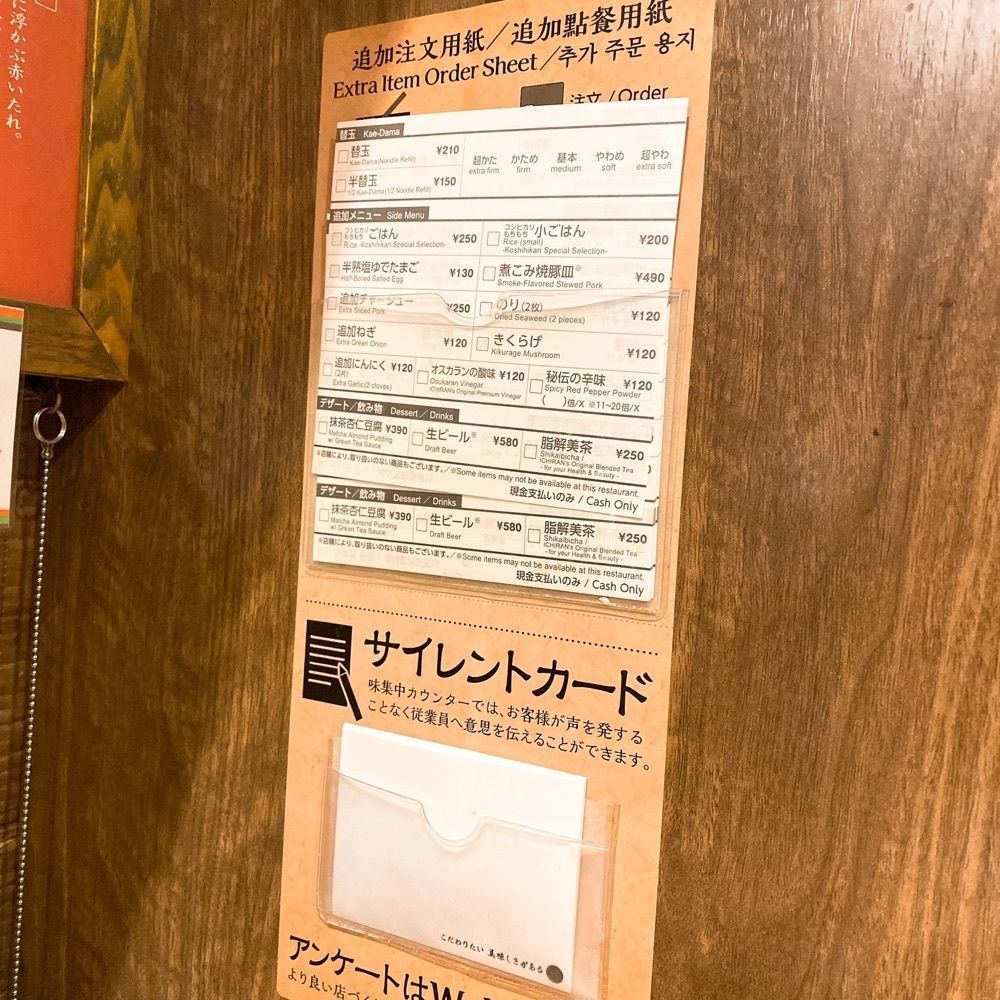 に浮かぶ赤いたれ。
追加注文用紙／追加點餐用紙
Extra Item Order Sheet／추가 주문 용지
注文 / Order
替玉 Kae-Dama
替玉 ¥210
Kae-Dama(Noodle Refill)
半替玉 ¥150
1/2 Kae-Dama(1/2 Noodle Refill)
超かた かため 基本 やわめ 超やわ
extra firm firm medium soft extra soft
追加メニュー Side Menu
コシヒカリ もちもち ごはん ¥250
Rice -Koshihikari Special Selection-
コシヒカリ もちもち 小ごはん ¥200
Rice (small)
-Koshihikari Special Selection-
半熟塩ゆでたまご ¥130
Half-Boiled Salted Egg
煮こみ焼豚皿※ ¥490
Smoke-Flavored Stewed Pork
追加チャーシュー ¥250
Extra Sliced Pork
のり(2枚) ¥120
Dried Seaweed (2 pieces)
追加ねぎ ¥120
Extra Green Onion
きくらげ ¥120
Kikurage Mushroom
追加にんにく ¥120
(2片)
Extra Garlic(2 cloves)
オスカランの酸味 ¥120
Osukaran Vinegar
ICHIRAN's Original Premium Vinegar
秘伝の辛味 ¥120
Spicy Red Pepper Powder
( )倍/X ※11~20倍/X
デザート／飲み物 Dessert／Drinks
抹茶杏仁豆腐 ¥390
Matcha Almond Pudding
w/ Green Tea Sauce
生ビール※ ¥580
Draft Beer
脂解美茶 ¥250
Shikaibicha /
ICHIRAN's Original Blended Tea
- for your Health & Beauty -
※店舗により、取り扱いのない商品もございます。／※Some items may not be available at this restaurant.
現金支払いのみ / Cash Only
デザート／飲み物 Dessert／Drinks
抹茶杏仁豆腐 ¥390
Matcha Almond Pudding
w/ Green Tea Sauce
生ビール※ ¥580
Draft Beer
脂解美茶 ¥250
Shikaibicha /
ICHIRAN's Original Blended Tea
- for your Health & Beauty -
※店舗により、取り扱いのない商品もございます。／※Some items may not be available at this restaurant.
現金支払いのみ / Cash Only
サイレントカード
味集中カウンターでは、お客様が声を発する
ことなく従業員へ意思を伝えることができます。
こだわりたい 美味しさがある
アンケートはWe
より良い店づく